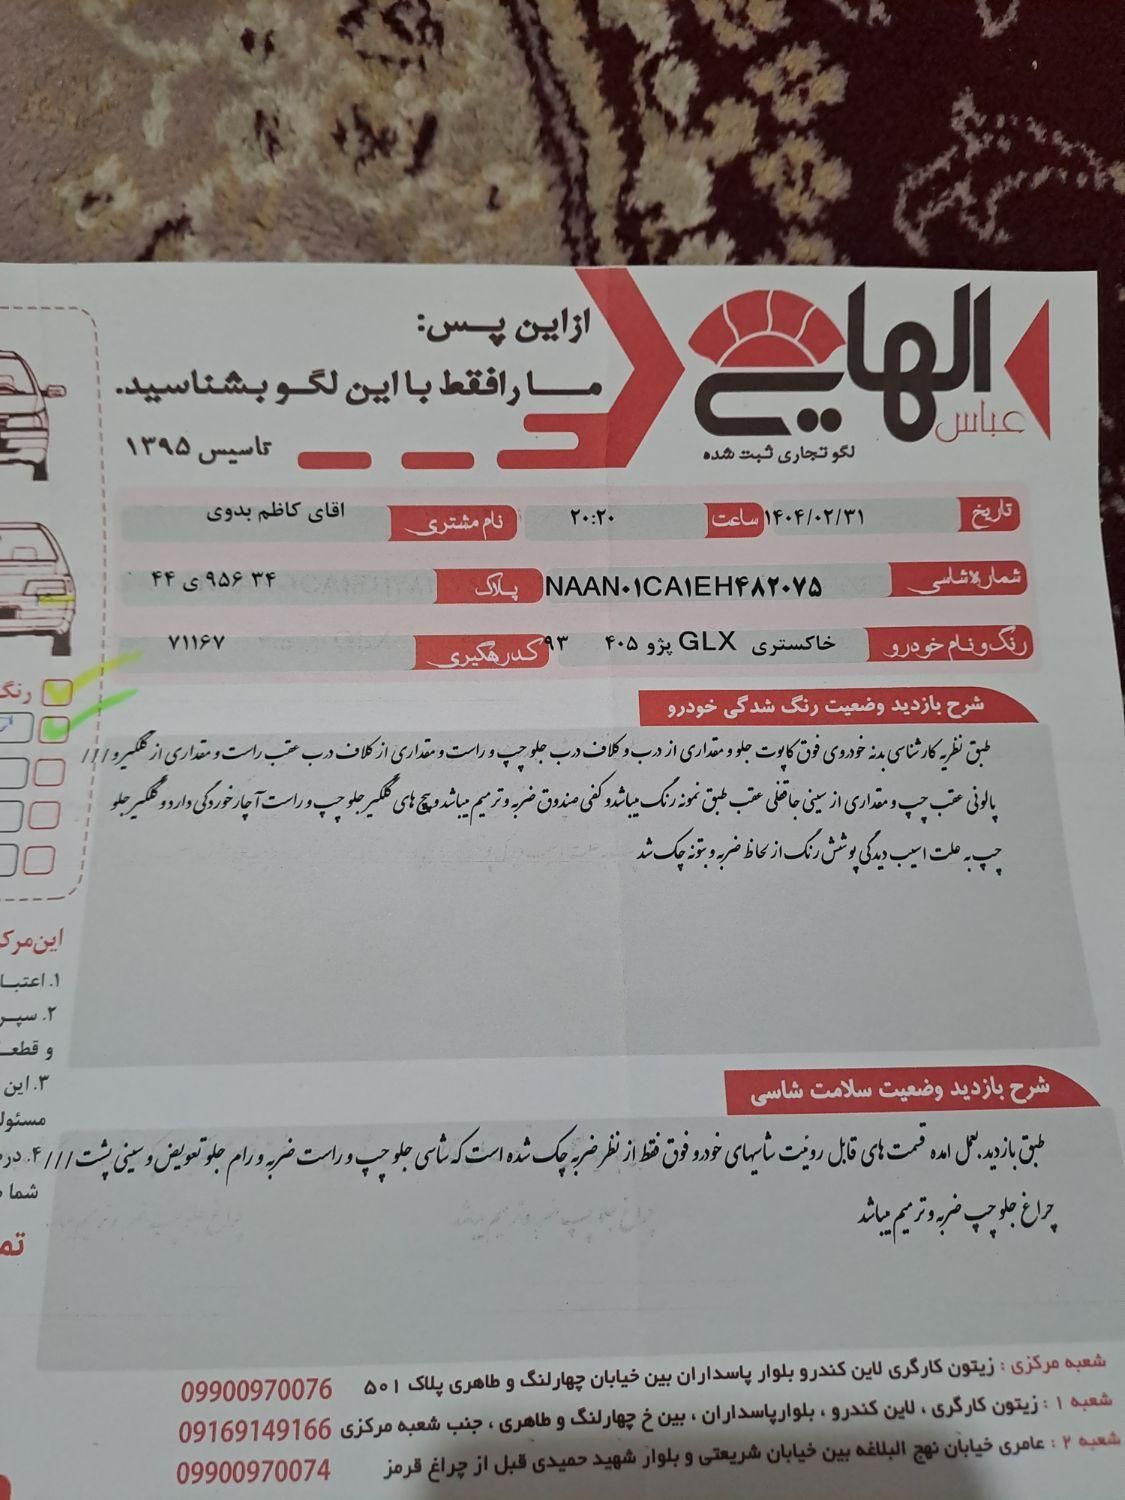 الهایی
عباس
لگو تجاری ثبت شده
ازاین پس:
ما رافقط با این لگو بشناسید.
تاسیس ۱۳۹۵
تاریخ ۱۴۰۴/۰۲/۳۱ ساعت ۲۰:۲۰ نام مشتری اقای کاظم بدوی
شماره شاسی NAAN۰۱CA۱EH۴۸۲۰۷۵ پلاک ۳۴ ۹۵۶ ی ۴۴
رنگ و نام خودرو خاکستری GLX پژو ۴۰۵ ۹۳ کدرهگیری ۷۱۱۶۷
شرح بازدید وضعیت رنگ شدگی خودرو
طبق نظریه کارشناسی بدنه خودروی فوق کاپوت جلو و مقداری از درب و کلاف درب جلو چپ و راست و مقداری از کلاف درب عقب راست و مقداری از گلگیر و ///
پالونی عقب چپ و مقداری از سینی جا قفلی عقب طبق نمونه رنگ میباشد و کفی صندوق ضربه و ترمیم میباشد و پیچ های گلگیر جلو چپ و راست آچار خوردگی دارد و گلگیر جلو
چپ به علت اسیب دیدگی پوشش رنگ از لحاظ ضربه و بتونه چک شد
شرح بازدید وضعیت سلامت شاسی
طبق بازدید بعمل امده قسمت های قابل روئیت شاسیهای خودرو فوق فقط از نظر ضربه چک شده است که شاسی جلو چپ و راست ضربه و رام جلو تعویض و سینی پشت ///
چراغ جلو چپ ضربه و ترمیم میباشد
شعبه مرکزی : زیتون کارگری لاین کندرو بلوار پاسداران بین خیابان چهارلنگ و طاهری پلاک ۵۰۱ 09900970076
شعبه ۱ : زیتون کارگری ، لاین کندرو ، بلوارپاسداران ، بین خ چهارلنگ و طاهری ، جنب شعبه مرکزی 09169149166
شعبه ۲ : عامری خیابان نهج البلاغه بین خیابان شریعتی و بلوار شهید حمیدی قبل از چراغ قرمز 09900970074
رنگ
این مرک
۱. اعتبا
۲. سپر
و قطعـ
۳. این
مسئول
۴. در
شما
تم